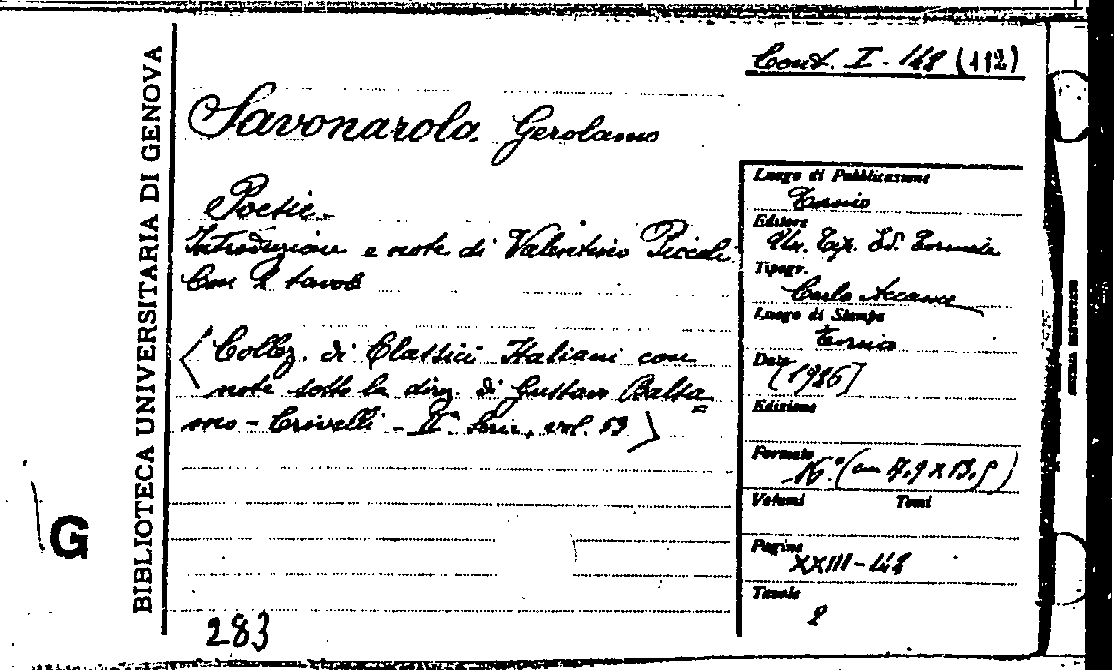 Cont. I - 148 (112)
BIBLIOTECA UNIVERSITARIA DI GENOVA
Savonarola Gerolamo
Poesie.
Introduzione e note di Valentino Piccoli
Con 2 tavole
(Collez. di Classici Italiani con
note sotto la direz. di Gustavo Balsa=
mo-Crivelli - IIª Serie, vol. 53)
283
G
Luogo di Pubblicazione
Torino
Editore
Un. Tip. Ed. Torinese
Tipogr.
Carlo Accame
Luogo di Stampa
Torino
Data
(1926)
Edizione
Formato
16.° (cm 7,9 x 13,5)
Volumi Tomi
Pagine
XXIII-148
Tavole
2